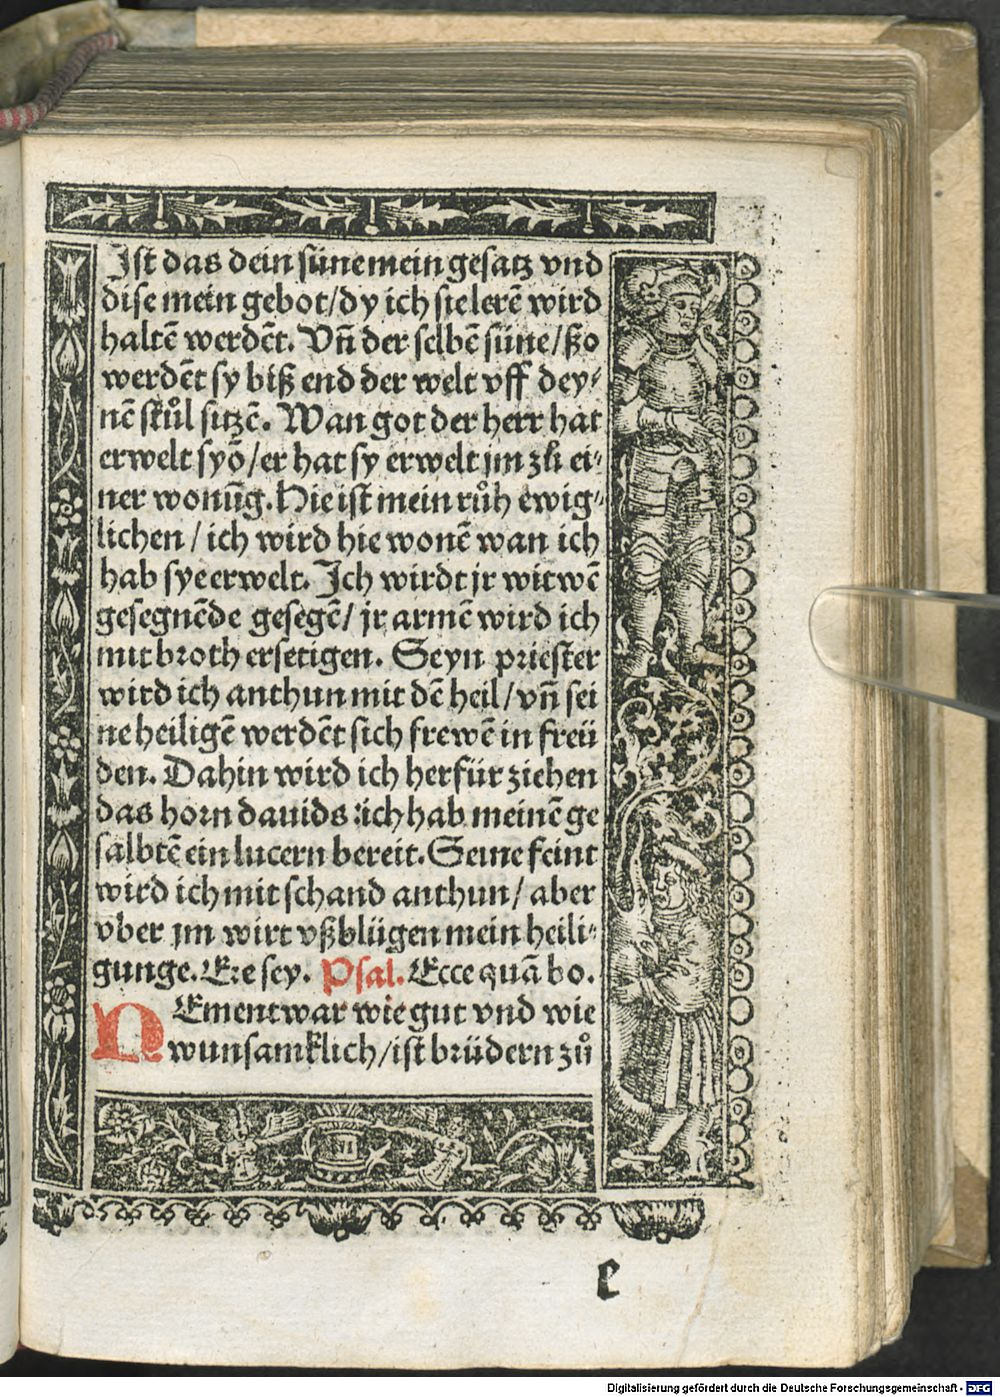 Ist das dein süne mein gesatz vnd
dise mein gebot/dy ich sie lerẽ wird
haltẽ werdẽt. Vñ der selbẽ süne/ßo
werdẽt sy biß end der welt vff dey⸗
nẽ stůl sitzẽ. Wan got der herr hat
erwelt syõ/er hat sy erwelt jm zů ei⸗
ner wonũg. Hie ist mein růh ewig⸗
lichen/ich wird hie wonẽ wan ich
hab sye erwelt. Ich wirdt jr witwẽ
gesegnẽde gesegẽ/ jr armẽ wird ich
mit broth ersetigen. Seyn priester
wird ich anthun mit dẽ heil/vñ sei
ne heiligẽ werdẽt sich frewẽ in freü
den. Dahin wird ich herfür ziehen
das horn dauids :ich hab meinẽ ge
salbtẽ ein lucern bereit. Seine feint
wird ich mit schand anthun/aber
vber jm wirt vßblügen mein heili⸗
gunge. Ere sey. Psal. Ecce quã bo.
NEment war wie gut vnd wie
wunsamklich/ist brüdern zů
VI
e
Digitalisierung gefördert durch die Deutsche Forschungsgemeinschaft - DFG